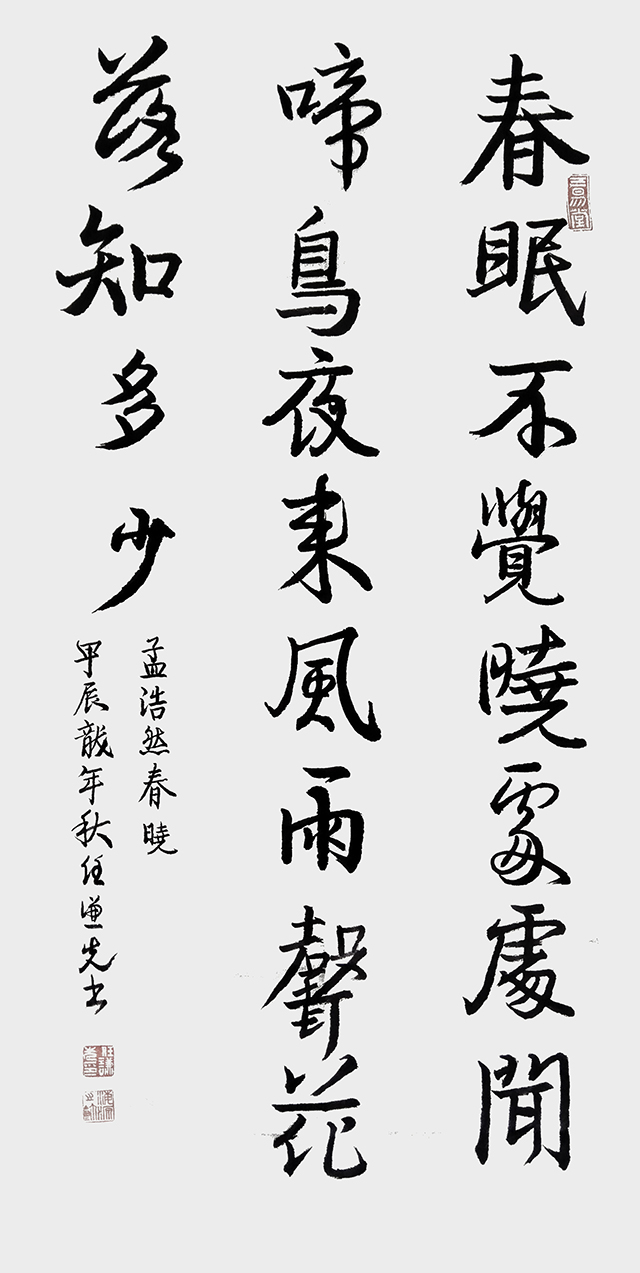 春眠不覺曉處處聞
啼鳥夜来風雨聲花
落知多少
孟浩然春曉
甲辰龍年秋任謙先书